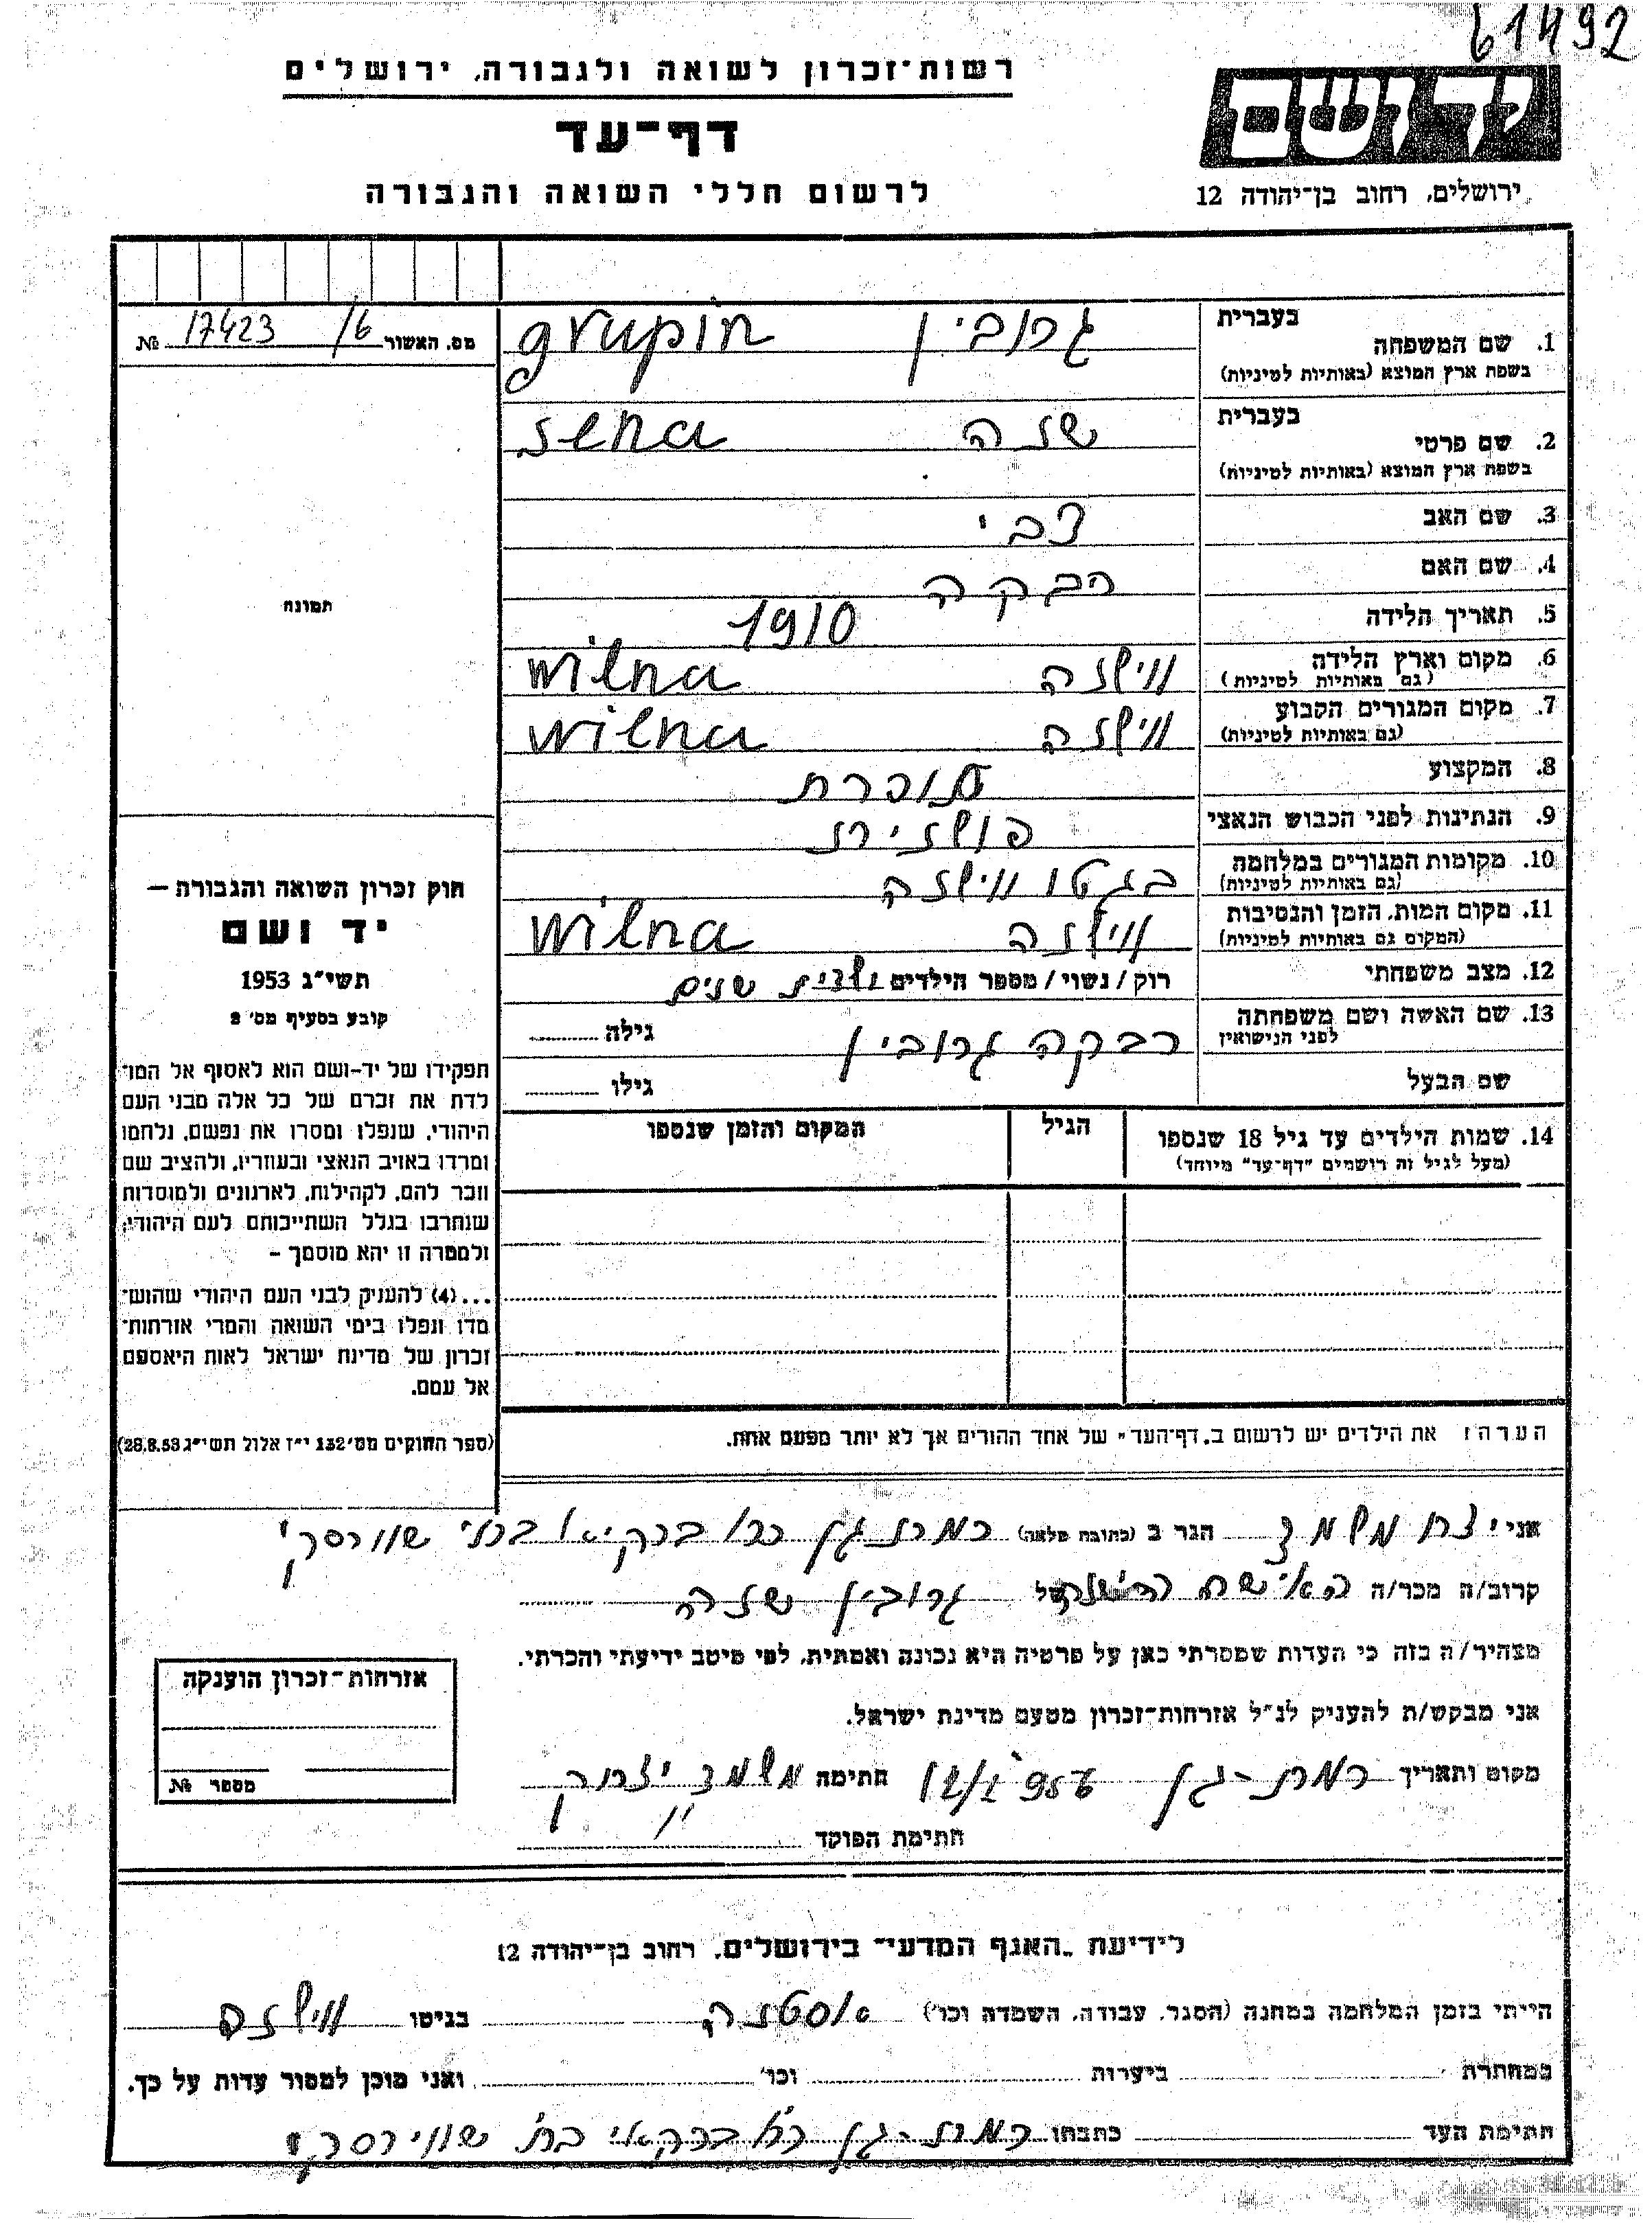 61492
רשות־זכרון לשואה ולגבורה, ירושלים
דף־עד
לרשום חללי השואה והגבורה
יד ושם
ירושלים, רחוב בן־יהודה 12
מס. האשור 17423 /6 №
תמונה
1. שם המשפחה
בעברית גרובין
בשפת ארץ המוצא (באותיות לטיניות) grupin
2. שם פרטי
בעברית שנה
בשפת ארץ המוצא (באותיות לטיניות) sena
3. שם האב צבי
4. שם האם רבקה
5. תאריך הלידה 1910
6. מקום וארץ הלידה ווילנה wilna
(גם באותיות לטיניות)
7. מקום המגורים הקבוע ווילנה wilna
(גם באותיות לטיניות)
8. המקצוע
9. הנתינות לפני הכבוש הנאצי
10. מקומות המגורים במלחמה בגטו ווילנה
(גם באותיות לטיניות)
11. מקום המות, הזמן והנסיבות ווילנה wilna
(המקום גם באותיות לטיניות)
12. מצב משפחתי רוק/נשוי/מספר הילדים
13. שם האשה ושם משפחתה רבקה גרובין גילה
לפני הנישואין
שם הבעל גילו
14. שמות הילדים עד גיל 18 שנספו הגיל המקום והזמן שנספו
(מעל לגיל זה רושמים "דף־עד" מיוחד)
הערה: את הילדים יש לרשום ב„דף־העד" של אחד ההורים אך לא יותר מפעם אחת.
חוק זכרון השואה והגבורה —
יד ושם
תשי"ג 1953
קובע בסעיף מס' 2
תפקידו של יד־ושם הוא לאסוף אל המו־
לדת את זכרם של כל אלה מבני העם
היהודי, שנפלו ומסרו את נפשם, נלחמו
ומרדו באויב הנאצי ובעוזריו, ולהציב שם
וזכר להם, לקהילות, לארגונים ולמוסדות
שנחרבו בגלל השתייכותם לעם היהודי;
ולמטרה זו יהא מוסמך –
...(4) להעניק לבני העם היהודי שהוש־
מדו ונפלו בימי השואה והמרי אזרחות־
זכרון של מדינת ישראל לאות היאספם
אל עמם.
(ספר החוקים מס' 132 י"ז אלול תשי"ג 28.8.53)
אני הגר ב (כתובת מלאה) רמת גן
קרוב/ה מכר/ה של גרובין שנה
מצהיר/ה בזה כי העדות שמסרתי כאן על פרטיה היא נכונה ואמתית, לפי מיטב ידיעתי והכרתי.
אני מבקש/ת להעניק לנ"ל אזרחות־זכרון מטעם מדינת ישראל.
מקום ותאריך רמת-גן חתימה
חתימת הפוקד
אזרחות־זכרון הוענקה
מספר №
לידיעת „האגף המדעי" בירושלים, רחוב בן־יהודה 12
הייתי בזמן המלחמה במחנה (הסגר, עבודה, השמדה וכו') בגיטו
במחתרת ביערות וכו' ואני מוכן למסור עדות על כך.
חתימת העד כתבתו רמת-גן